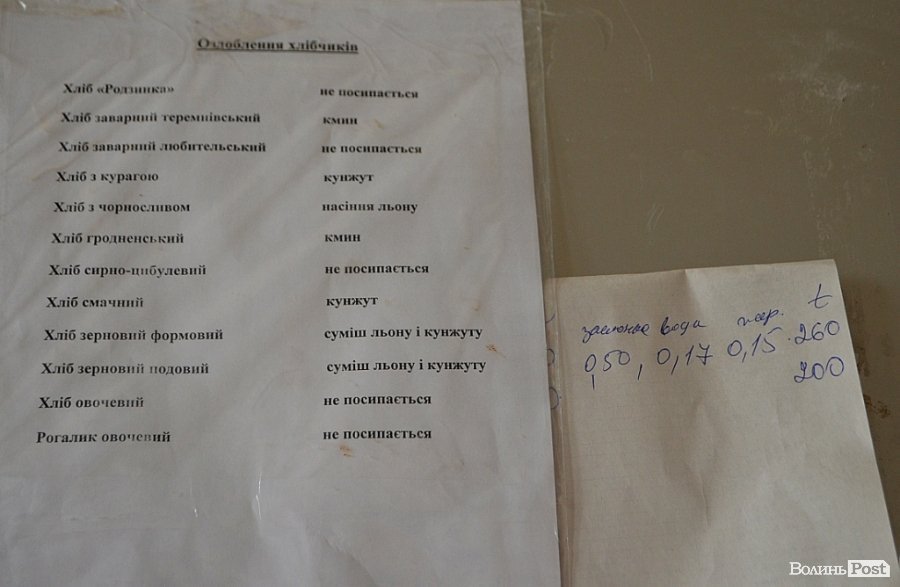 Оздоблення хлібчиків
Хліб «Родзинка» не посипається
Хліб заварний теремнівський кмин
Хліб заварний любительський не посипається
Хліб з курагою кунжут
Хліб з чорносливом насіння льону
Хліб гродненський кмин
Хліб сирно-цибулевий не посипається
Хліб смачний кунжут
Хліб зерновий формовий суміш льону і кунжуту
Хліб зерновий подовий суміш льону і кунжуту
Хліб овочевий не посипається
Рогалик овочевий не посипається
вода t
0,50, 0,17 0,15. 260
200
ВолиньPost